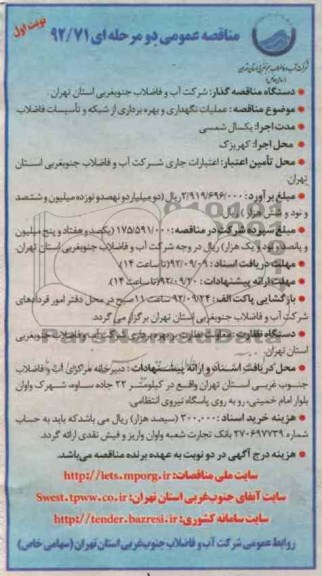 نوبت اول
مناقصه عمومی دو مرحله ای ۹۲/۷۱
شرکت آب و فاضلاب جنوبغربی استان تهران
• دستگاه مناقصه گذار: شرکت آب و فاضلاب جنوبغربی استان تهران.
• موضوع مناقصه: عملیات نگهداری و بهره برداری از شبکه و تأسیسات فاضلاب
• مدت اجرا: یکسال شمسی
• محل اجرا: کهریزک
• محل تأمین اعتبار: اعتبارات جاری شرکت آب و فاضلاب جنوبغربی استان
تهران.
• مبلغ برآورد: ۲/۹۱۹/۶۹۶/۰۰۰ ریال (دو میلیارد و نهصد و نوزده میلیون و ششصد
و نود و شش هزار) ریال
• مبلغ سپرده شرکت در مناقصه: ۱۷۵/۵۹۱/۰۰۰ (یکصد و هفتاد و پنج میلیون
و پانصد و نود و یک هزار) ریال در وجه شرکت آب و فاضلاب جنوبغربی استان تهران.
• مهلت دریافت اسناد: ۹۲/۰۹/۰۹ (تا ساعت ۱۴)
• مهلت ارائه پیشنهادات: ۹۲/۰۹/۲۰ (تا ساعت ۱۴).
• بازگشایی پاکت الف: ۹۲/۰۹/۲۴ ساعت ۱۱ صبح در محل دفتر امور قراردادهای
شرکت آب و فاضلاب جنوبغربی استان تهران برگزار می گردد.
• دستگاه نظارت: آب و فاضلاب جنوبغربی
استان تهران
• محل دریافت اسناد و ارائه پیشنهادات: دبیرخانه مرکزی آب و فاضلاب
جنوب غربی استان تهران واقع در کیلومتر ۲۲ جاده ساوه، شهرک واوان
بلوار امام خمینی، رو به روی پاسگاه نیروی انتظامی.
• هزینه خرید اسناد: ۳۰۰,۰۰۰ (سیصد هزار) ریال می باشد که باید به حساب
شماره ۲۷۰۶۹۷۷۳۹ بانک تجارت شعبه واوان واریز و فیش نقدی ارائه گردد.
• هزینه درج آگهی در دو نوبت به عهده برنده مناقصه می‌باشد.
سایت ملی مناقصات: http://iets.mporg.ir
سایت آبفای جنوب غربی استان تهران: Swest.tpww.co.ir
سایت سامانه کشوری: http://tender.bazresi.ir
روابط عمومی شرکت آب و فاضلاب جنوب‌غربی استان تهران (سهامی خاص)